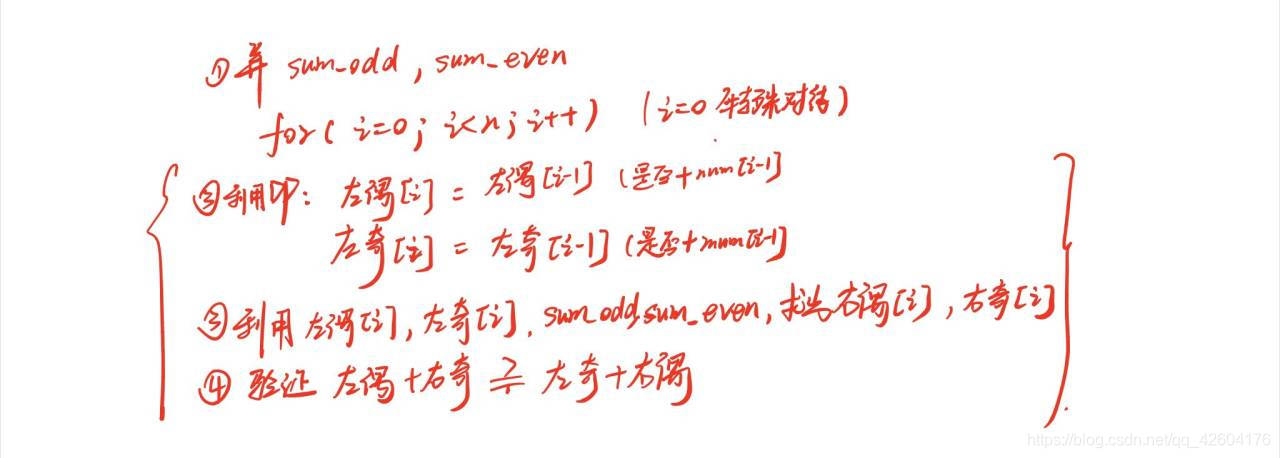 ① 求 sum_odd, sum_even
for( i=0; i<n; i++) (i=0 特殊对待)
②利用DP: 左偶[i] = 左偶[i-1] (是否+num[i-1]
左奇[i] = 左奇[i-1] (是否+num[i-1]
③利用左偶[i], 左奇[i], sum_odd, sum_even, 求出右偶[i], 右奇[i]
④ 验证 左偶+右奇 ?= 左奇+右偶
https://blog.csdn.net/qq_42604176